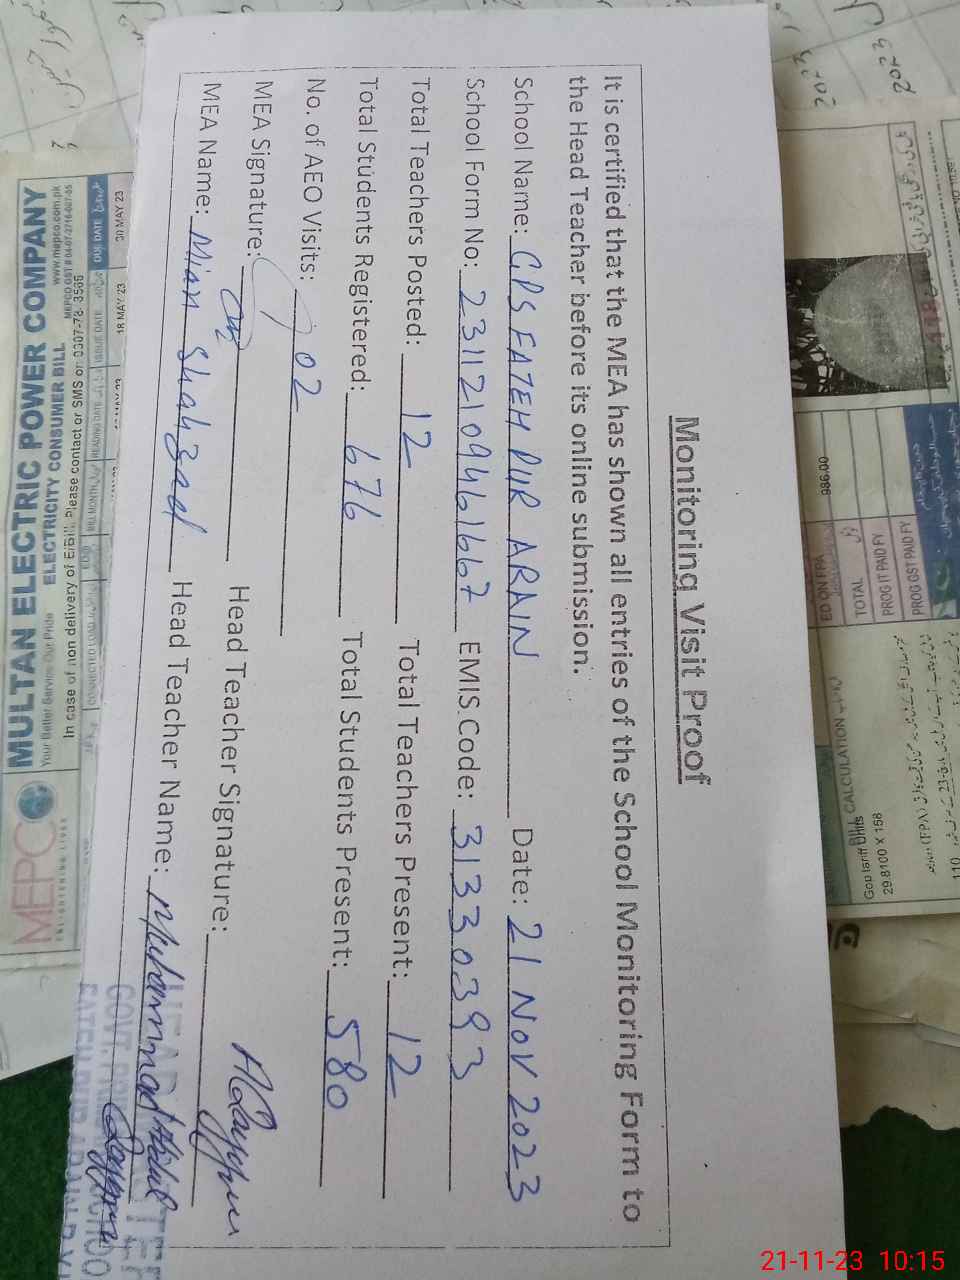 Monitoring Visit Proof
It is certified that the MEA has shown all entries of the School Monitoring Form to
the Head Teacher before its online submission.
School Name: GPS FATEH PUR ARAIN Date: 21 NOV 2023
School Form No: 23112109461667 EMIS Code: 31330393
Total Teachers Posted: 12 Total Teachers Present: 12
Total Students Registered: 676 Total Students Present: 580
No. of AEO Visits: 02
MEA Signature: Head Teacher Signature:
MEA Name: Mian Shahzad Head Teacher Name: Muhammad Abdul Qayyum
GOVT. PRIMARY
FATEH PUR ARAIN
30 MAY 23
18 MAY 23
DUE DATE
ISSUE DATE
READING DATE
BILL MONTH
CONNECTED LOAD
www.mepco.com.pk
MULTAN ELECTRIC POWER COMPANY
ELECTRICITY CONSUMER BILL
Your Better Service Our Pride
In case of non delivery of E/Bill, Please contact or SMS on
MEPCO
986.00
ED ON FPA
TOTAL
PROG IT PAID FY
PROG GST PAID FY
BILL CALCULATION
29.8100 X 158
2023
2023
21-11-23 10:15